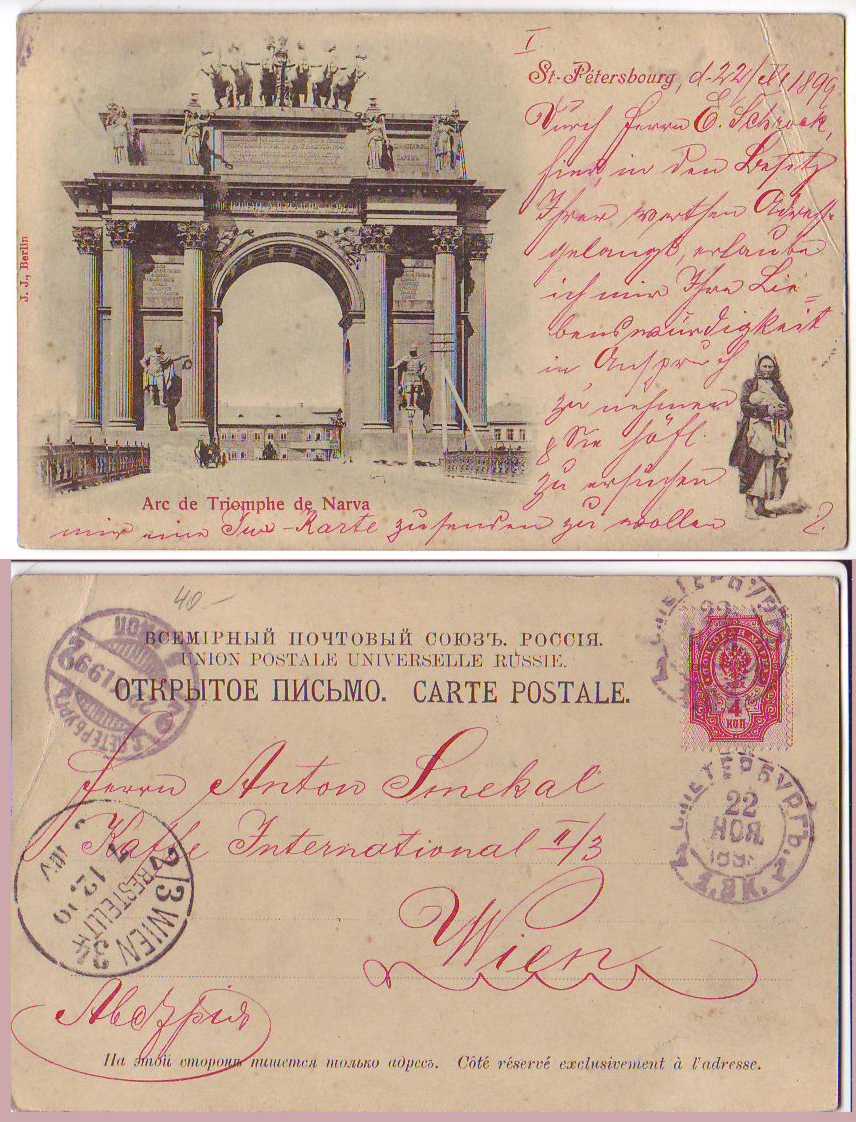 I
St-Pétersbourg, d. 22/XI 1899
Durch Herrn E. Schrock,
hier, in den Besitz
Ihrer werthen Adresse
gelangt, erlaube
ich mir Ihre Lie=
benswürdigkeit
in Anspruch
zu nehmen
& Sie höfl.
zu ersuchen
mir eine Ihre-Karte zusenden zu wollen
2.
J. J., Berlin
Arc de Triomphe de Narva
40-
ВСЕМІРНЫЙ ПОЧТОВЫЙ СОЮЗЪ. РОССІЯ.
UNION POSTALE UNIVERSELLE RUSSIE.
ОТКРЫТОЕ ПИСЬМО. CARTE POSTALE.
4
КОП
С.ПЕТЕРБУРГЪ
22
НОЯ
1899
Herrn Anton Smekal
Kaffe International II/3
Wien
2/3 WIEN 34
BESTELLT
Австрія
На этой сторонѣ пишется только адресъ. Côté réservé exclusivement à l'adresse.